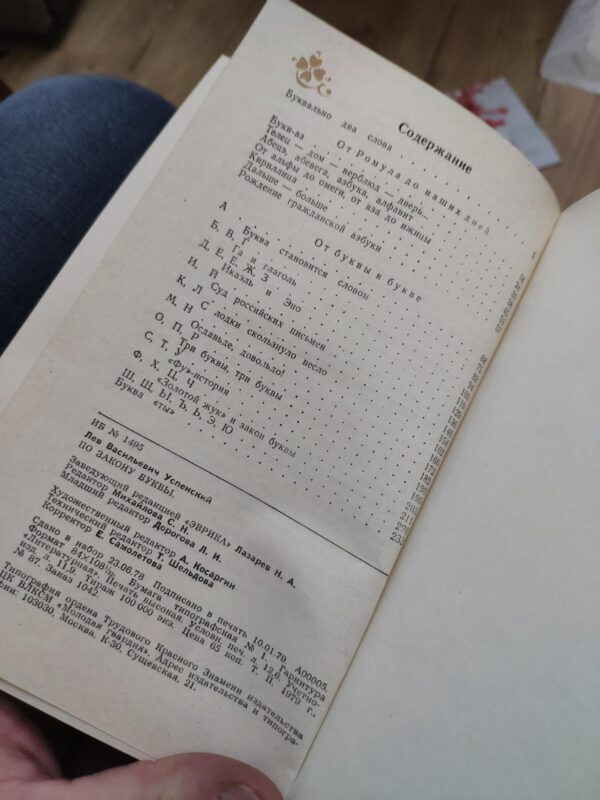 Содержание
Буквально два слова
От Ромула до наших дней
Буки-аз
Телец — дом — верблюд — дверь...
Абецэ, абевега, азбука, алфавит
От альфы до омеги, от аза до ижицы
Кириллица
Дальше — больше
Рождение гражданской азбуки
От буквы к букве
А
Буква становится словом
Б, В, Г
Га и глаголь
Д, Е, Ё, Ж, З
Икаэль и Эно
И, Й
Суд российских письмен
К, Л
С лодки скользнуло весло
М, Н
Оставьте, довольдо!
О, П, Р
Три буквы, три буквы
С, Т, У
«Фу»-история
Ф, Х, Ц, Ч
«Золотой жук» и закон буквы
Ш, Щ, Ы, Ъ, Ь, Э, Ю
Буква «ты»
ИБ № 1495
Лев Васильевич Успенский
ПО ЗАКОНУ БУКВЫ.
Заведующий редакцией «ЭВРИКА» Лазарев Н. А.
Редактор Михайлова С. Н.
Младший редактор Дерогова Л. Н.
Художественный редактор А. Косаргин
Технический редактор Т. Шельдова
Корректор Е. Самолетова
Сдано в набор 23.06.78 Подписано в печать 10.01.79. А00005.
Формат 84×108 Бумага типографская № 1. Гарнитура
«Литературная». Печать высокая. Условн. печ. л. 12,6. Учетно-
изд. л. 11,9. Тираж 100 000 экз. Цена 65 коп. Т. П. 1979 г.,
№ 87. Заказ 1042.
Типография ордена Трудового Красного Знамени издательства
ЦК ВЛКСМ «Молодая гвардия». Адрес издательства и типогра-
фии: 103030, Москва, К-30, Сущевская, 21.